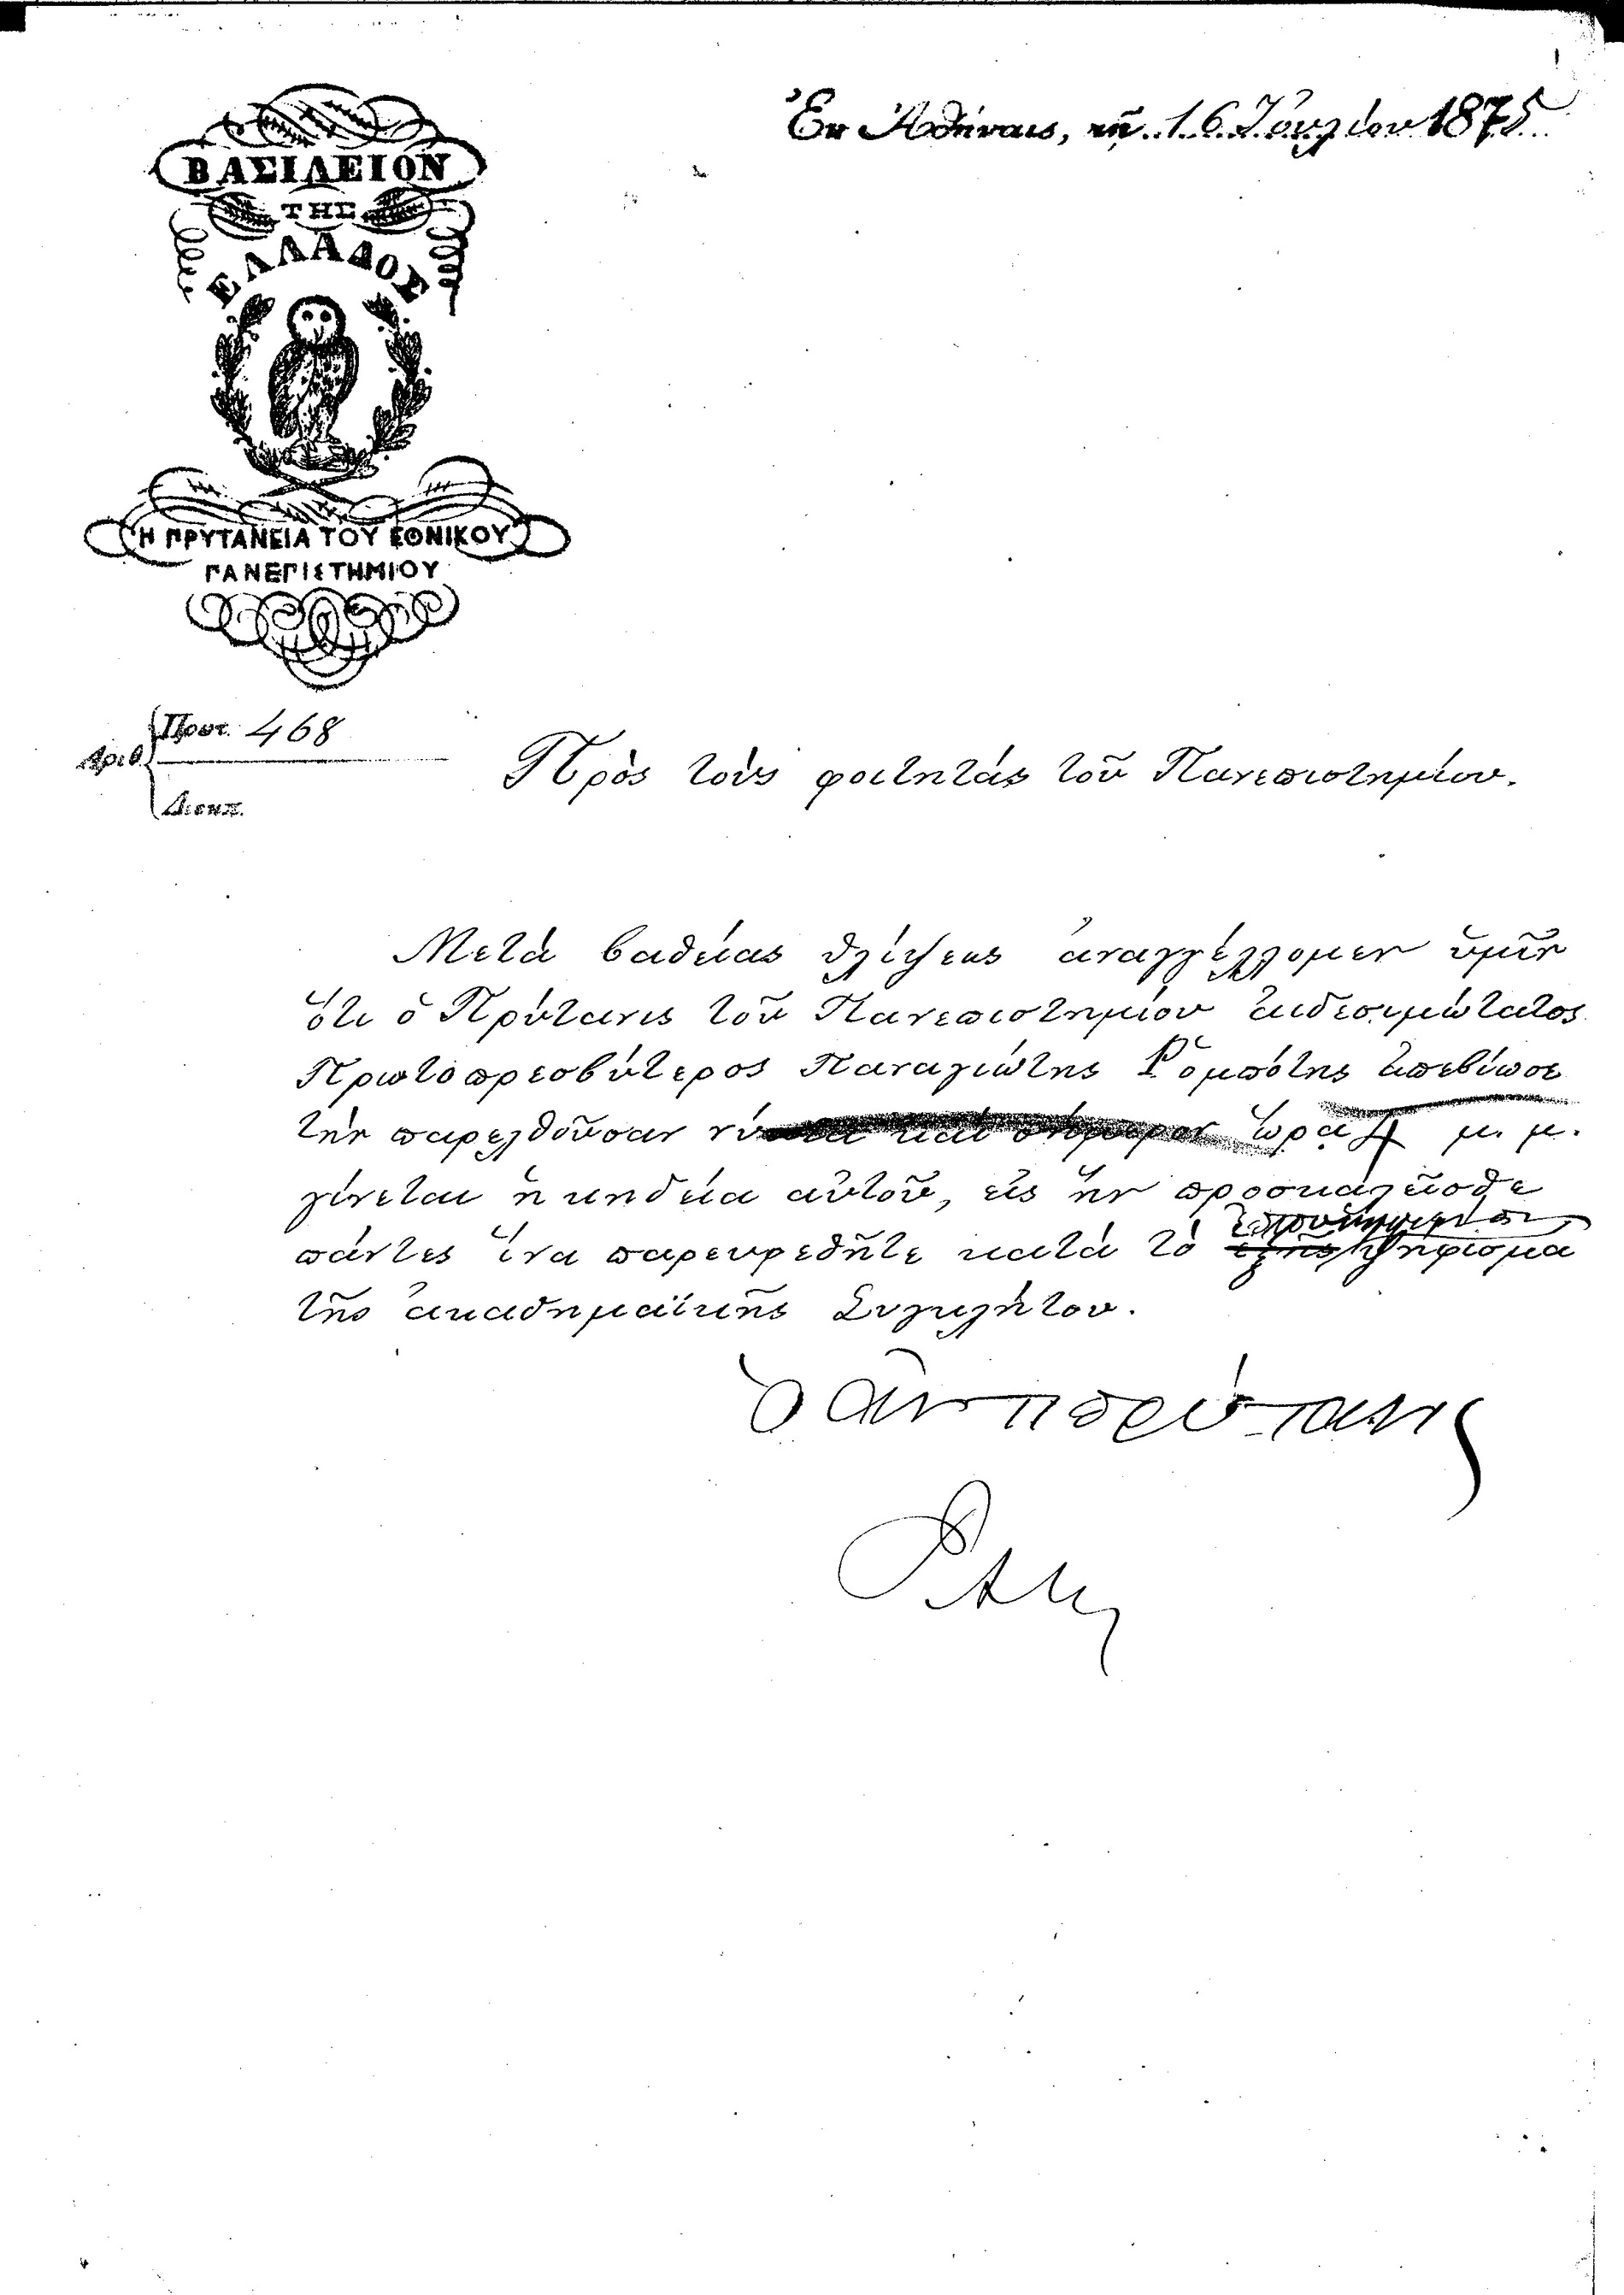 Ἐν Ἀθήναις, τῇ 16 Ἰουλίου 1875
ΒΑΣΙΛΕΙΟΝ
ΤΗΣ
ΕΛΛΑΔΟΣ
Η ΠΡΥΤΑΝΕΙΑ ΤΟΥ ΕΘΝΙΚΟΥ
ΠΑΝΕΠΙΣΤΗΜΙΟΥ
Πρωτ. 468
Ἀριθ.
Διεκπ.
Πρὸς τοὺς φοιτητὰς τοῦ Πανεπιστημίου.
Μετὰ βαθείας θλίψεως ἀναγγέλλομεν ὑμῖν
ὅτι ὁ Πρύτανις τοῦ Πανεπιστημίου αἰδεσιμώτατος
Πρωτοπρεσβύτερος Παναγιώτης Ῥομπότης ἀπεβίωσε
τὴν παρελθοῦσαν νύκτα καὶ σήμερον ὥρᾳ μ. μ.
γίνεται ἡ κηδεία αὐτοῦ, εἰς ἣν προσκαλεῖσθε
πάντες ἵνα παρευρεθῆτε κατὰ τὸ ἑξῆς ψήφισμα
τῆς ἀκαδημαϊκῆς Συγκλήτου.
Ὁ ἀντιπρύτανις